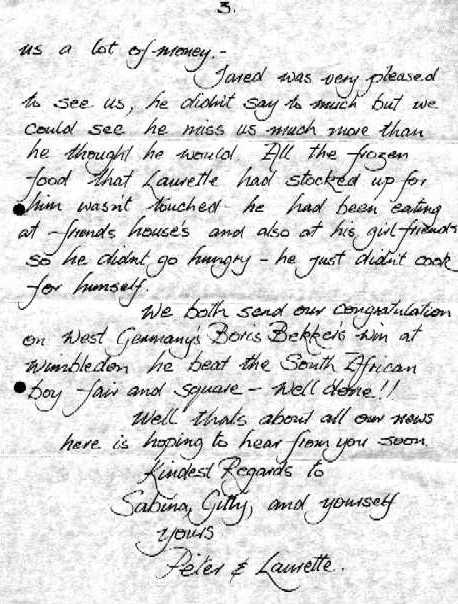 3.
us a lot of money.-
Jared was very pleased
to see us, he didn't say to much but we
could see he miss us much more than
he thought he would. All the frozen
food that Laurette had stocked up for
him wasn't touched - he had been eating
at friends houses and also at his girlfriends
so he didn't go hungry - he just didn't cook
for himself.
We both send our congratulation
on West Germany's Boris Bekker's win at
Wimbledon he beat the South African
boy fair and square - Well done!!
Well thats about all our news
here is hoping to hear from you soon.
Kindest Regards to
Sabina, Gitty, and yourself
yours
Peter & Laurette.